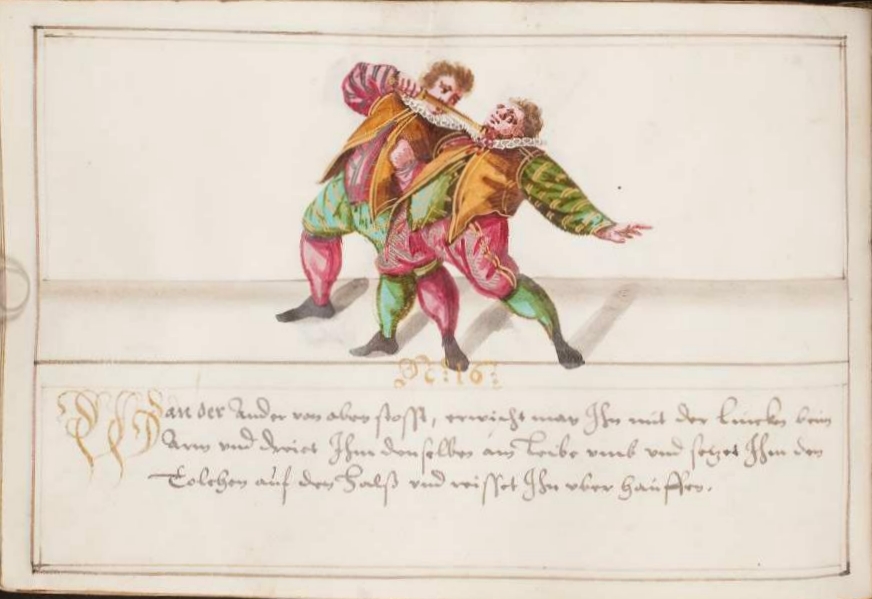 N: 16:
Wan der Ander von oben stosst, erwischt man Ihn mit der lincken beim
Arm vnd dreiet Ihm denselben am Leibe vmb vnd setzet Ihm den
Tolchen auf den Halß vnd reisset Ihn vber hauffen.